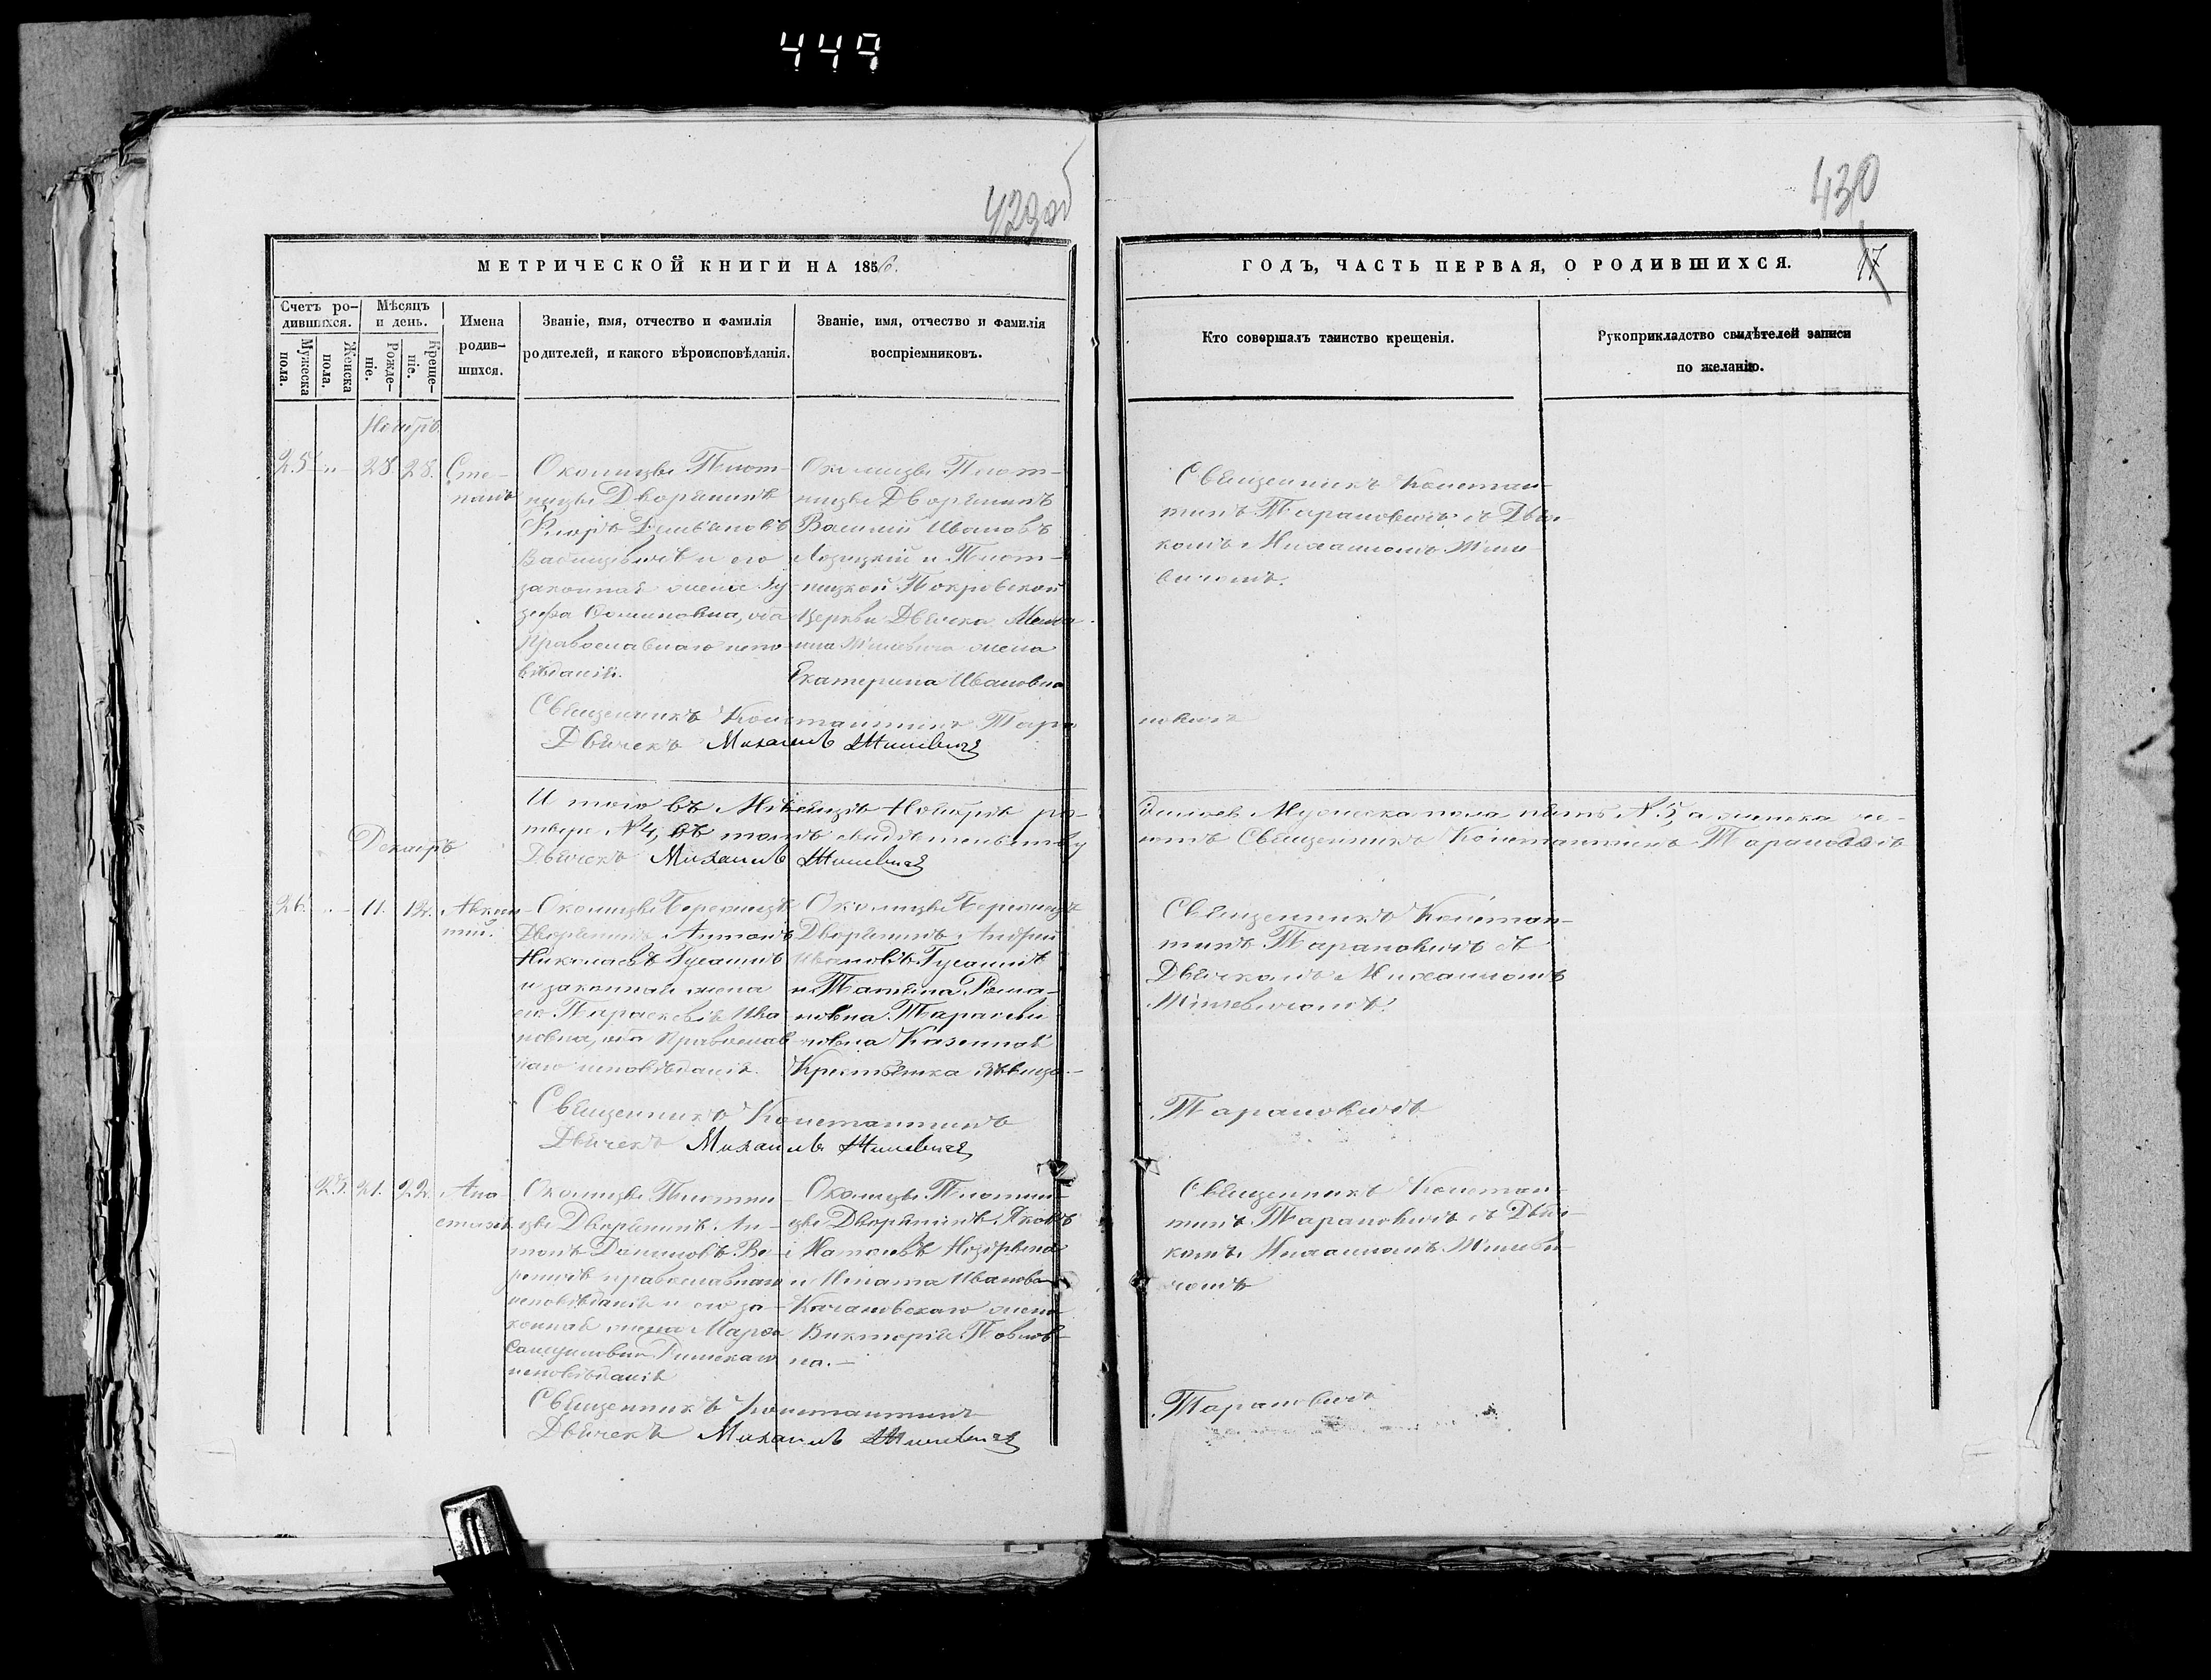 449
429 об
430
МЕТРИЧЕСКОЙ КНИГИ НА 1856.
ГОДЪ, ЧАСТЬ ПЕРВАЯ, О РОДИВШИХСЯ.
17
Счетъ ро-
дившихся.
Мужеска
пола.
Женска
пола.
Мѣсяцъ
и день.
Рожде-
ніе.
Креще-
ніе.
Имена
родив-
шихся.
Званіе, имя, отчество и фамилія
родителей, и какого вѣроисповѣданія.
Званіе, имя, отчество и фамилія
воспріемниковъ.
Кто совершалъ таинство крещенія.
Рукоприкладство свидѣтелей записи
по желанію.
Ноябрь
25 " 28. 28.
Сте-
панъ
Околицы Плот-
ницы Дворянинъ
Флоръ Демьяновъ
и его
законная жена
оба
Православнаго испо-
вѣданія.
Околицы Плот-
ницы Дворянинъ
Василій Ивановъ
Лозицкій и Плот-
ницкой Покровской
Церкви Дьячка Миха-
ила жена
Екатерина Ивановна
Священникъ Констан-
тинъ Тарановичъ съ Дьяч-
комъ Михаиломъ
вичомъ.
Священникъ Константинъ Тара
новичъ
Дьячекъ Михаилъ
И того въ Мѣсяцѣ Ноябрѣ ро-
дилось Мужеска пола пять № 5, а женска че-
твере № 4, въ томъ свидѣтельству
ютъ Священникъ Константинъ Тарановичъ
Дьячекъ Михаилъ
Декабрь
26. " 11. 12.
Околицы
Дворянинъ Антонъ
Николаевъ Гусаинъ
и законная жена
его Параскевія Ива
новна, оба Православ
наго исповѣданія.
Околицы
Дворянинъ Андрей
Ивановъ Гусаинъ
и Татьяна Рома-
новна
Казенная
Крестьянка
Священникъ Констан-
тинъ Тарановичъ съ
Дьячкомъ Михаиломъ
Священникъ Константинъ
Тарановичъ
Дьячекъ Михаилъ
25. 21. 22.
Ана-
стасія
Околицы Плотни-
цы Дворянинъ Ан-
тонъ Даниловъ Ве-
реничъ православнаго
исповѣданія и его за-
конная жена Марѳа
Римскаго
исповѣданія
Околицы Плотни-
цы Дворянинъ Яковъ
и Игната Иванова
Качановскаго жена
Викторія Павлов-
на. —
Священникъ Констан-
тинъ Тарановичъ съ Дьяч-
комъ Михаиломъ
чомъ
Священникъ Константинъ
Тарановичъ
Дьячекъ Михаилъ